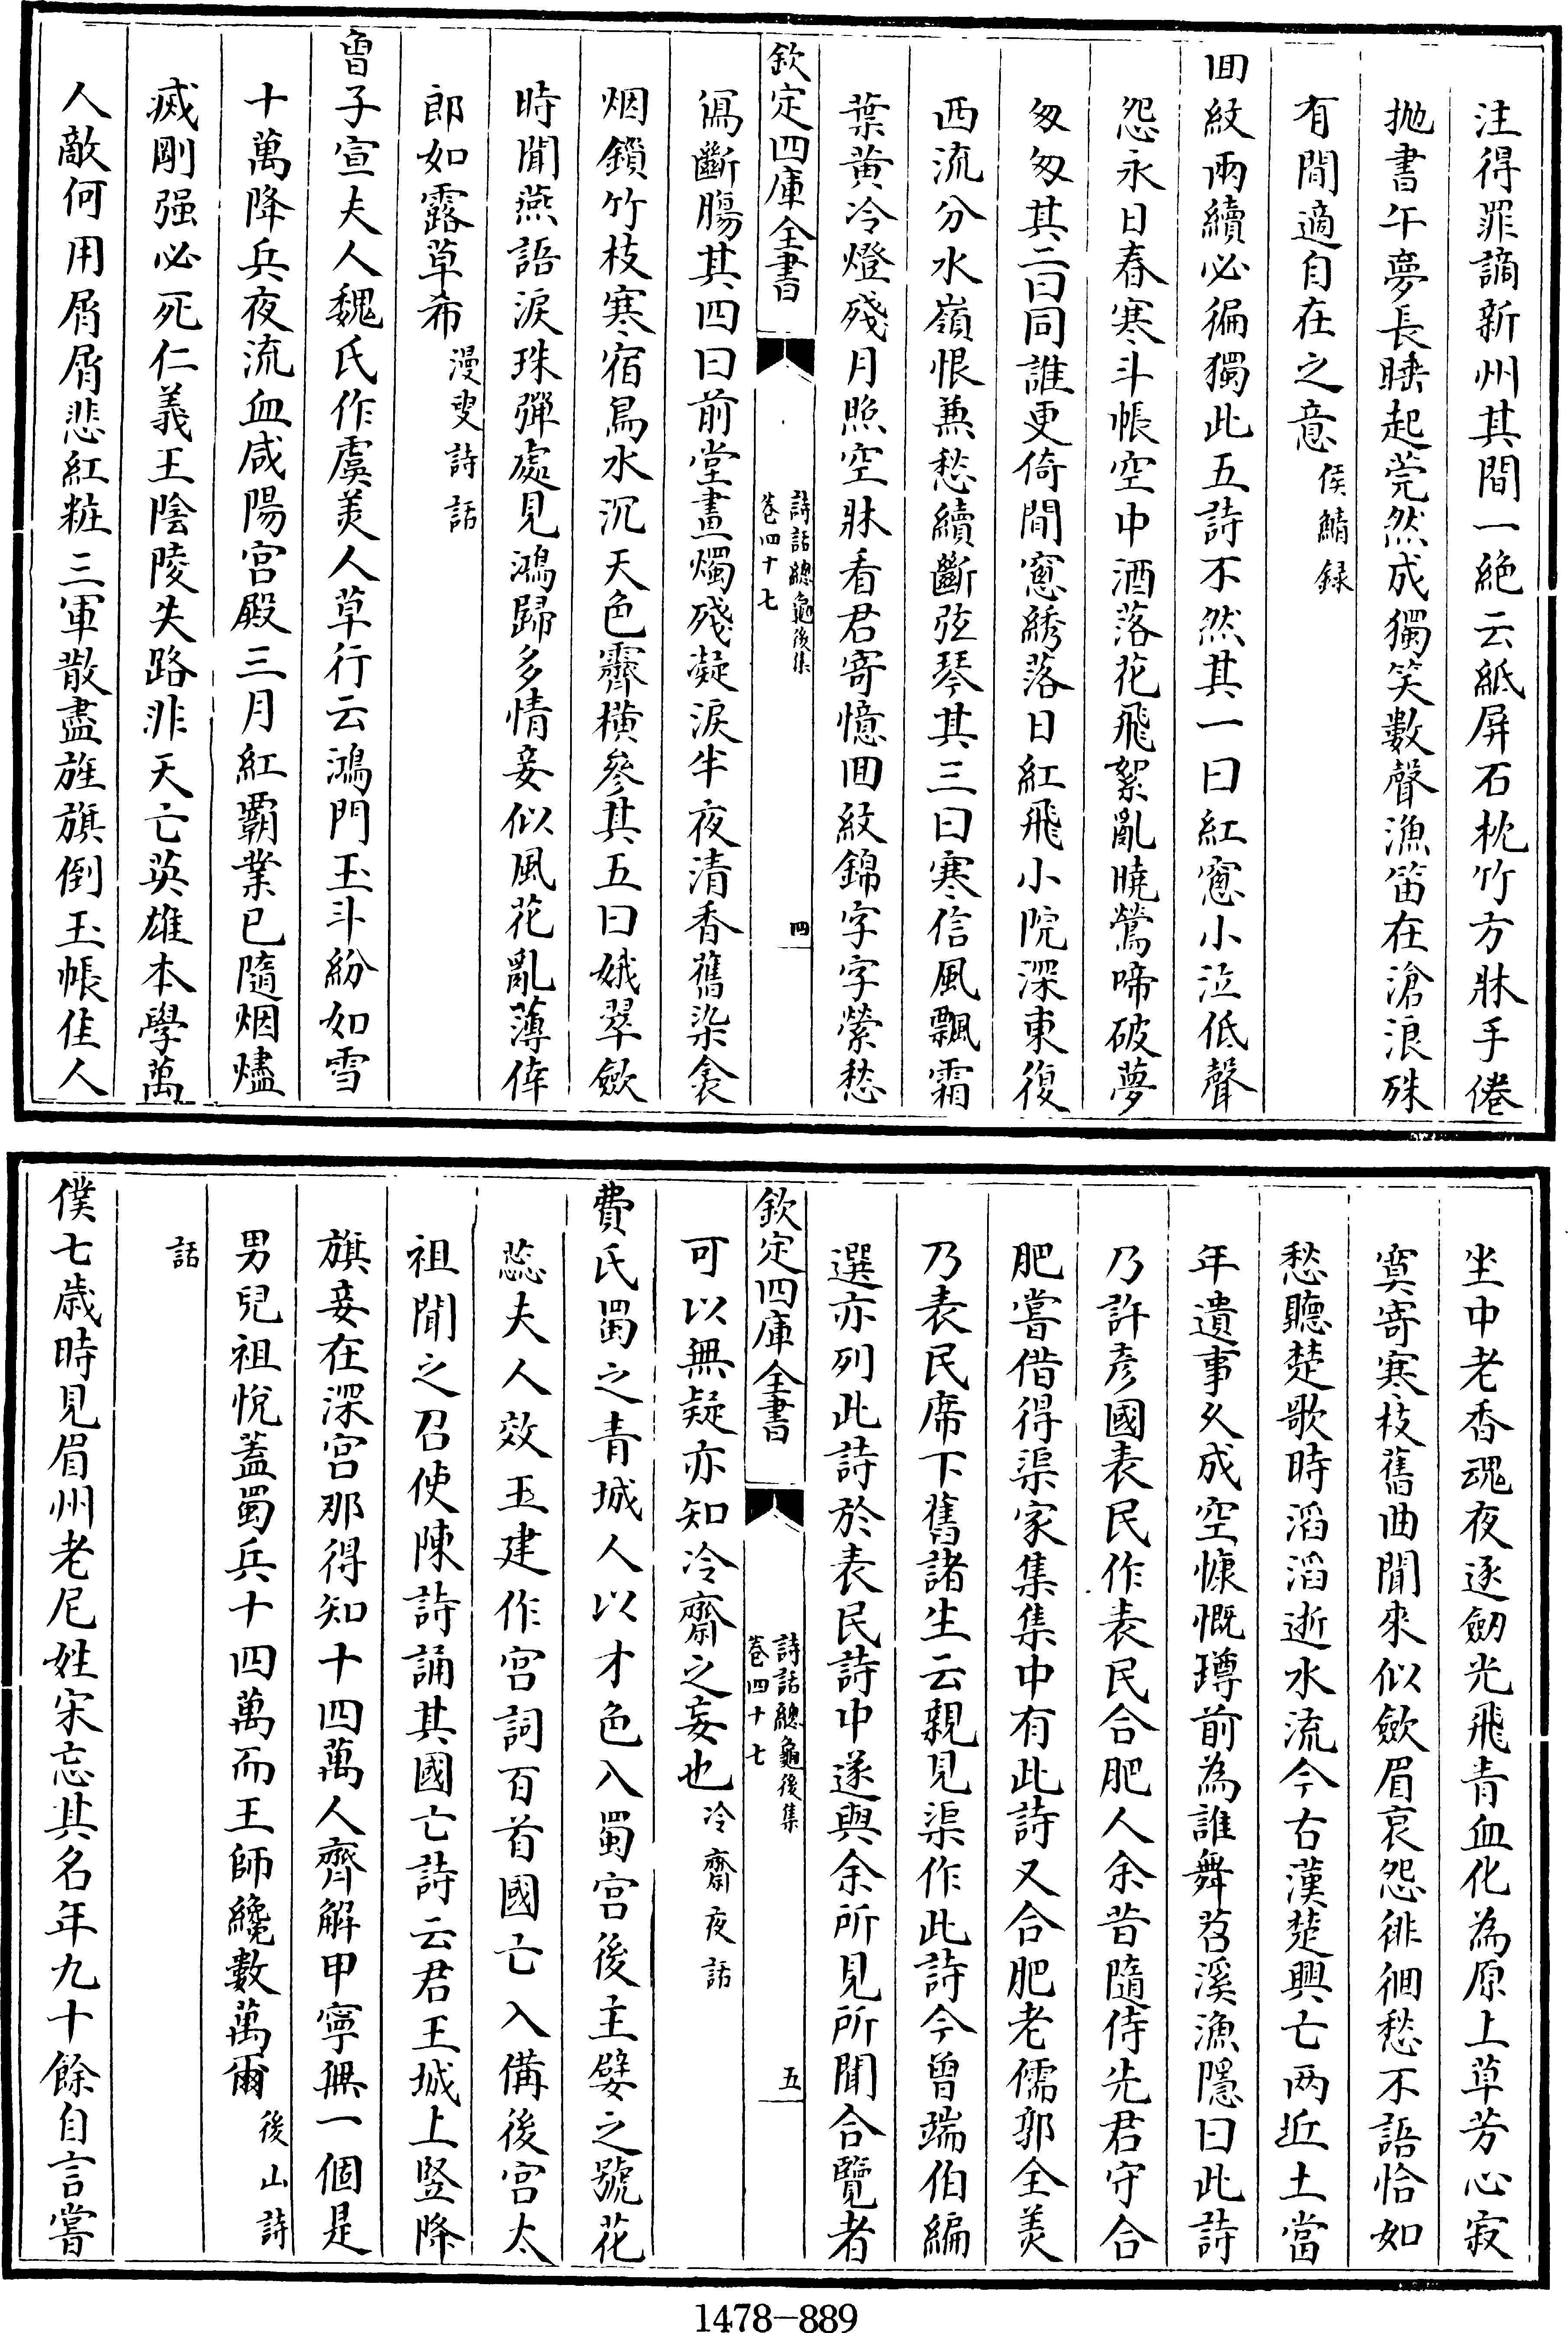 注得罪謫新州其間一絶云紙屏石枕竹方牀手倦
抛書午夢長睡起莞然成獨笑數聲漁笛在滄浪殊
有閒適自在之意侯鯖録
回紋兩續必徧獨此五詩不然其一曰紅窻小泣低聲
怨永日春寒斗帳空中酒落花飛絮亂曉鶯啼破夢
匆匆其二曰同誰更倚閒窻綉落日紅飛小院深東復
西流分水嶺恨無愁續斷弦琴其三曰寒信風飄霜
葉黄冷燈殘月照空牀看君寄憶回紋錦字字縈愁
欽定四庫全書
詩話總龜後集
卷四十七
四
寫斷腸其四曰前堂畫燭殘凝淚半夜清香舊染衾
烟鎖竹枝寒宿鳥水沉天色霽橫參其五曰娥翠斂
時聞燕語淚珠彈處見鴻歸多情妾似風花亂薄倖
郎如露草希漫叟詩話
曾子宣夫人魏氏作虞美人草行云鴻門玉斗紛如雪
十萬降兵夜流血咸陽宫殿三月紅覇業已隨烟燼
滅剛强必死仁義王陰陵失路非天亡英雄本學萬
人敵何用屑屑悲紅粧三軍散盡旌旗倒玉帳佳人
坐中老香魂夜逐劒光飛青血化為原上草芳心寂
寞寄寒枝舊曲聞來似歛眉哀怨徘徊愁不語恰如
愁聽楚歌時滔滔逝水流今右漢楚興亡兩近土當
年遺事久成空慷慨罇前為誰舞苕溪漁隱曰此詩
乃許彦國表民作表民合肥人余昔隨侍先君守合
肥嘗借得渠家集集中有此詩又合肥老儒郭全美
乃表民席下舊諸生云親見渠作此詩今曾端伯編
選亦列此詩於表民詩中遂與余所見所聞合覽者
欽定四庫全書
詩話總龜後集
卷四十七
五
可以無疑亦知冷齋之妄也冷齋夜話
費氏蜀之青城人以才色入蜀宫後主嬖之號花
蕊夫人效王建作宫詞百首國亡入備後宫太
祖聞之召使陳詩誦其國亡詩云君王城上竪降
旗妾在深宫那得知十四萬人齊解甲寧無一個是
男兒祖悅蓋蜀兵十四萬而王師纔數萬爾後山詩
話
僕七歳時見眉州老尼姓宋忘其名年九十餘自言嘗
1478-889